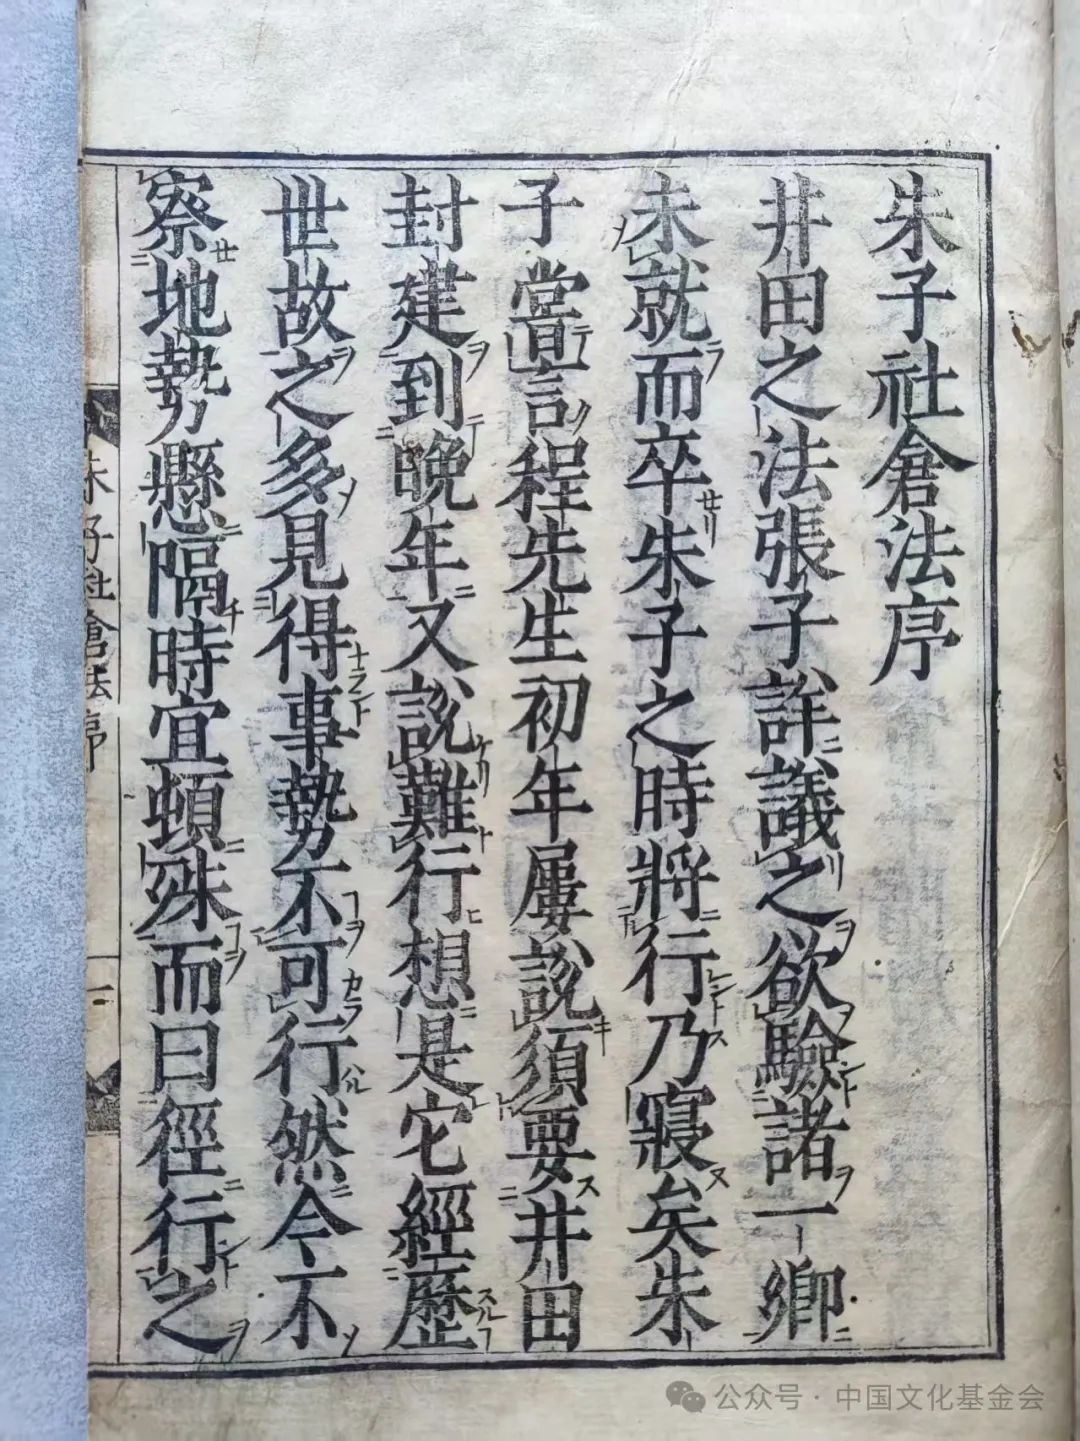 朱子社倉法序
井田之法張子詳議之欲驗諸一鄉
未就而卒朱子之時將行乃寢矣朱
子嘗言程先生初年屢說須要井田
封建到晚年又說難行想是它經歷
世故之多見得事勢不可行然今不
察地勢懸隔時宜頓殊而曰徑行之
朱子社倉法序
一
公众号·中国文化基金会